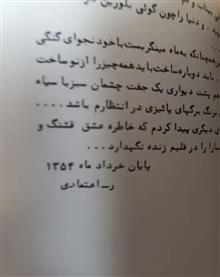 و دنیا را چون گوئی بلورین
همچنانکه به ماه مینگریست با خود نجوای گنگی
باید دوباره ساخت باید همه چیز را از نو ساخت
پشت دیواری یک جفت چشمان سبز یا سیاه
برنگ برگهای پائیزی در انتظارم باشد ....
دیگری پیدا کردم که خاطره عشق قشنگ و
مارا را در قلبم زنده نگهدارد ...
پایان خرداد ماه ۱۳۵۴
ر_ اعتمادی